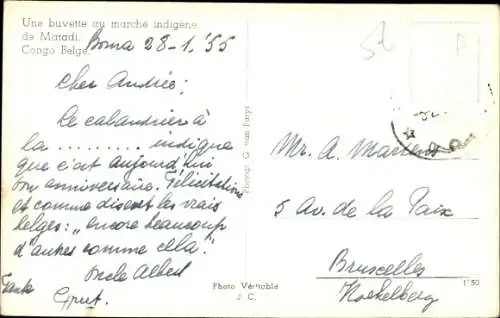 Une buvette au marché indigène
de Matadi.
Congo Belge.
Boma 28-1.'55
Cher André;
Le calandrier à
la .......... indique
que c'est aujourd'hui
ton anniversaire. Félicitations
et comme disent les vrais
belges: "encore beaucoup
d'autres comme cella".
Oncle Albert
Tante
Photogr. G. van Parys
Photo Véritable
J. C.
Mr. A. Martens
5 Av. de la Paix
Bruxelles
Koekelberg